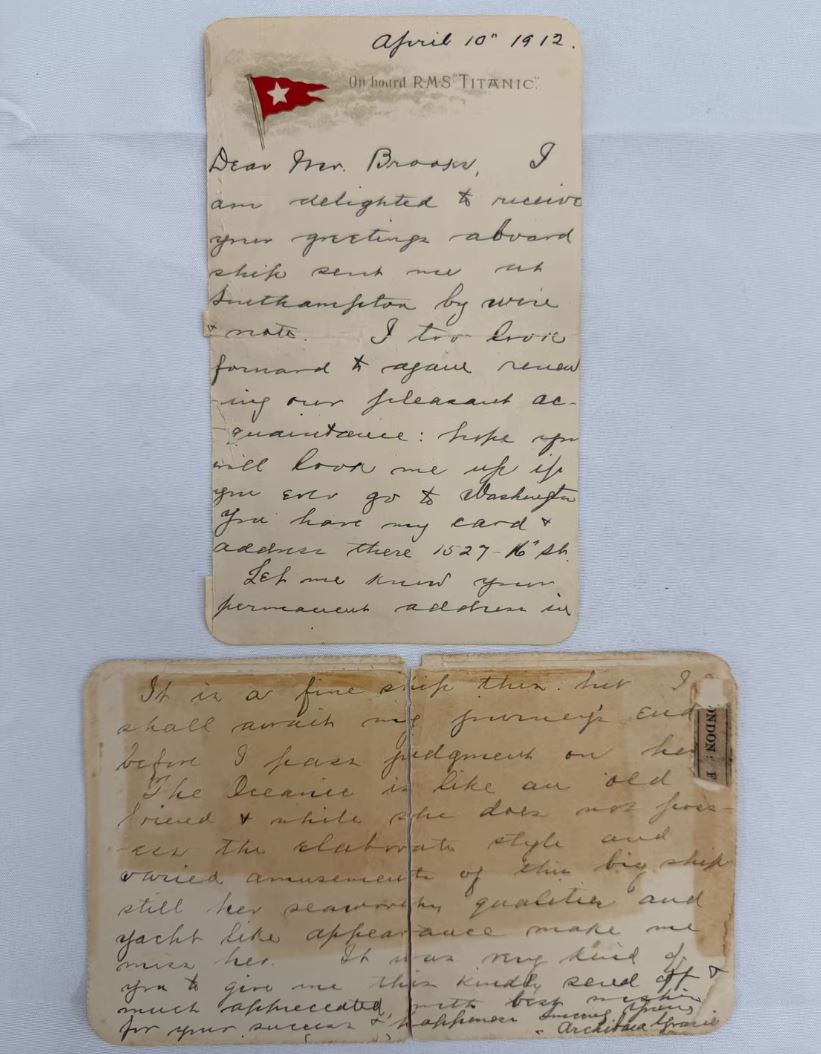 April 10" 1912.
On board R.M.S "TITANIC".
Dear Mr. Brooks, I
am delighted to receive
your greetings aboard
ship sent me at
Southampton by wire
& note. I too look
forward to again renew
-ing our pleasant ac-
quaintance: hope you
will look me up if
you ever go to Washington
You have my card &
address there 1527-16" St.
Let me know your
permanent address in
It is a fine ship this. but I
shall await my journey's end
before I pass judgment on her
The Oceanic is like an old
friend & while she does not poss-
-ess the elaborate style and
varied amusements of this big ship
still her seaworthy qualities and
yacht like appearance make me
miss her. It was very kind of
you to give me this kindly send off &
much appreciated, with best wishes
for your success & happiness
Archibald Gracie
ONDON : E